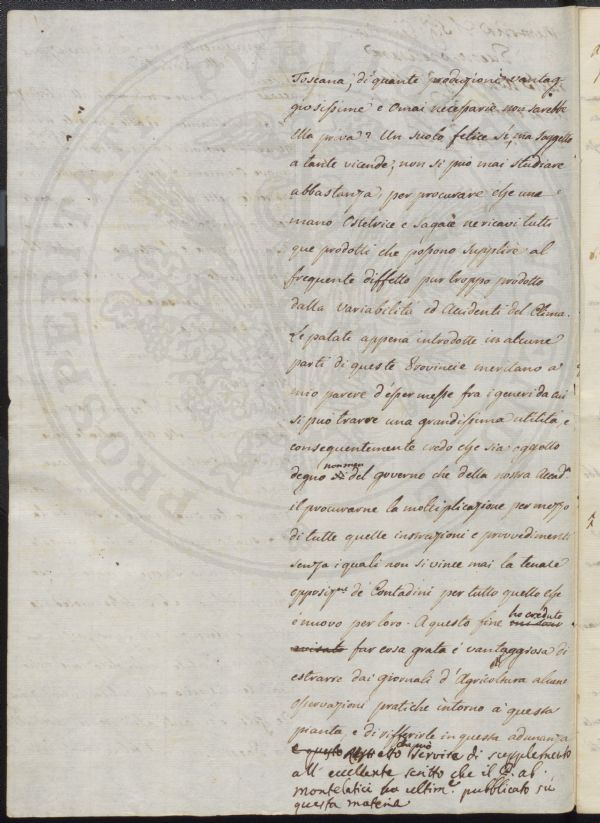 Toscana, di quante produzioni vantag-
giosissime e omai necessarie non sarebbe
ella priva? Un suolo felice sì, ma soggetto
a tante vicende, non si può mai studiare
abbastanza, per procurare che una
mano Ostetrice e Sagace ne ricavi tutti
que prodotti che possono supplire al
frequente diffetto pur troppo prodotto
dalla variabilità ed Accidenti del Clima.
Le patate appena introdotte in alcune
parti di queste Provincie meritano a
mio parere d'esser messe fra i generi da cui
si può trarre una grandissima utilità, e
consequentemente credo che sia oggetto
degno non meno del governo che della nostra Accad.ª
il procurarne la moltiplicazione per mezzo
di tutte quelle instruzioni e provvedimenti
senza i quali non si vince mai la tenace
opposiz.ne de Contadini per tutto quello che
è nuovo per loro. A questo fine ho creduto
far cosa grata e vantaggiosa di
estrarre dai giornali d'Agricoltura alcune
osservazioni pratiche intorno a questa
pianta, e di in questa adunanza
e questo servire di scepplemento
all' eccellente scritto che il P. ab.
Montelatici ha ultim.e pubblicato sù
questa materia
PROSPERITATI PUBLI